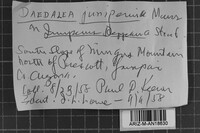 DAEDALEA juniperina Murr
on Juniperus Deppeana Steud
South slope of Mingus Mountain
North of Prescott, Yavapai
Co Arizona.
Coll. 8/23/58 Paul D. Keener
ident. J. L. Lowe - 9/6/58
ARIZ-M-AN18830